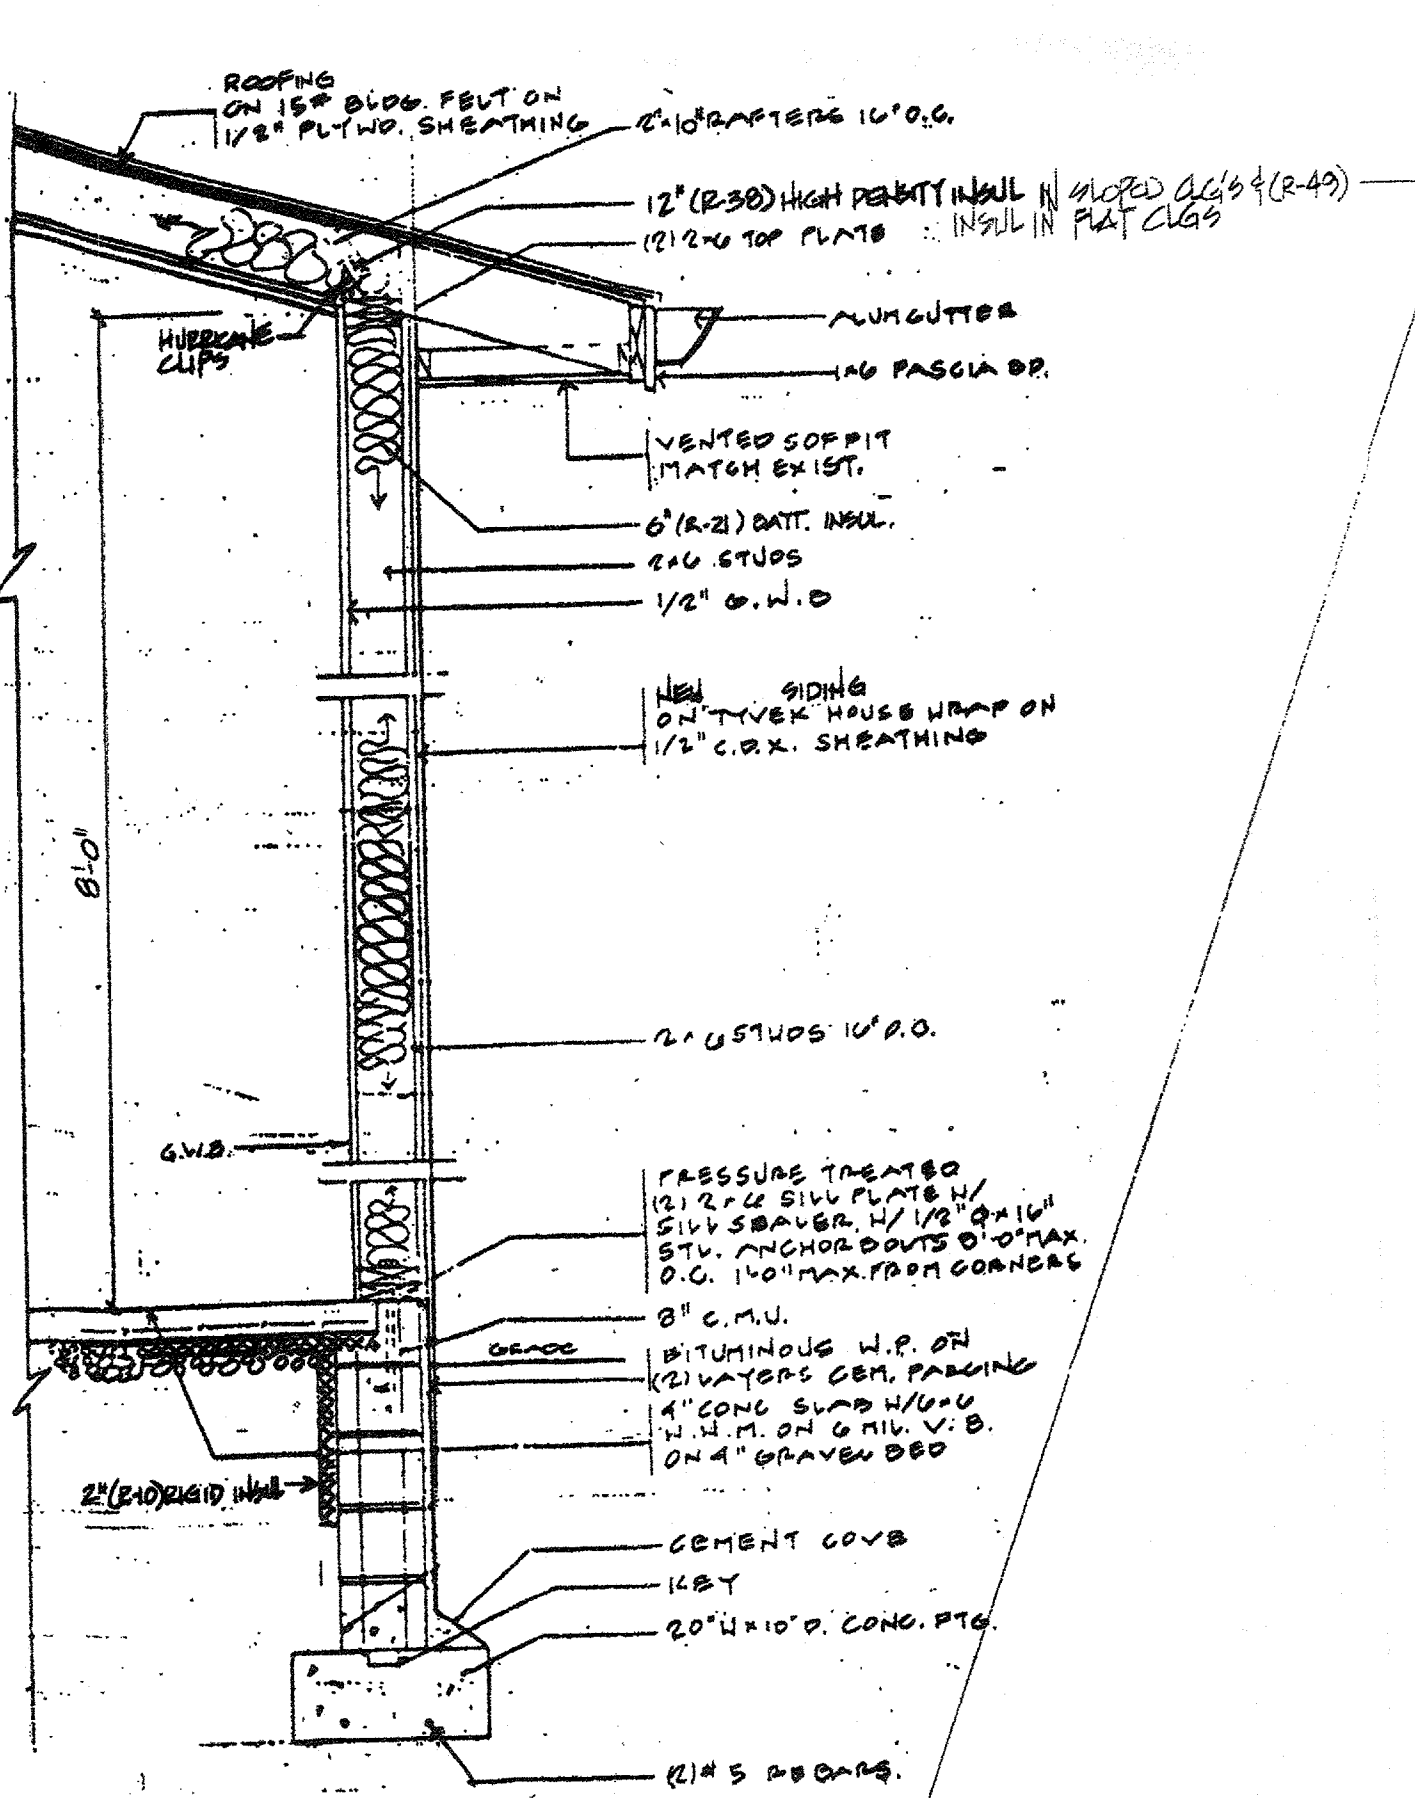 ROOFING
ON 15# BLDG. FELT ON
1/2" PLYWD. SHEATHING
2"x10" RAFTERS 16" O.C.
12" (R-38) HIGH DENSITY INSUL IN SLOPED CLG'S & (R-49)
INSUL IN FLAT CLGS
(2) 2x6 TOP PLATE
HURRICANE
CLIPS
ALUM GUTTER
1x6 FASCIA BD.
VENTED SOFFIT
MATCH EXIST.
6" (R-21) BATT. INSUL.
2x6 STUDS
1/2" G.W.B
NEW SIDING
ON "TYVEK" HOUSE WRAP ON
1/2" C.D.X. SHEATHING
8'-0"
2x6 STUDS 16" O.C.
G.W.B.
PRESSURE TREATED
(2) 2x6 SILL PLATE W/
SILL SEALER, W/ 1/2" Ø x 16"
STL. ANCHOR BOLTS 8'-0" MAX.
O.C. 1'-0" MAX. FROM CORNERS
8" C.M.U.
GRADE
BITUMINOUS W.P. ON
(2) LAYERS CEM. PARGING
4" CONC SLAB W/6x6
W.W.M. ON 6 MIL. V.B.
ON 4" GRAVEL BED
2" (R-10) RIGID INSUL
CEMENT COVE
KEY
20" W x 10" D. CONC. FTG.
(2) # 5 REBARS.